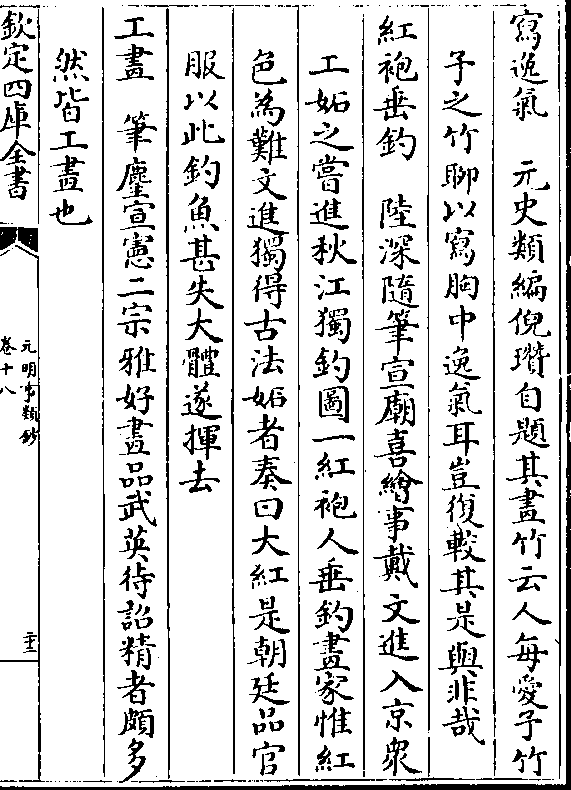 寫逸氣　元史類編倪瓚自題其畫竹云人每愛子竹
子之竹聊以寫胸中逸氣耳豈復較其是與非哉
紅袍垂釣　陸深隨筆宣廟喜繪事戴文進入京衆
工妬之嘗進秋江獨釣圖一紅袍人垂釣畫家惟紅
色為難文進獨得古法妬者奏曰大紅是朝廷品官
服以此釣魚甚失大體遂揮去
工畫　筆麈宣憲二宗雅好畫品武英待詔精者頗多
然皆工畫也
欽定四庫全書
元明事類鈔
卷十八